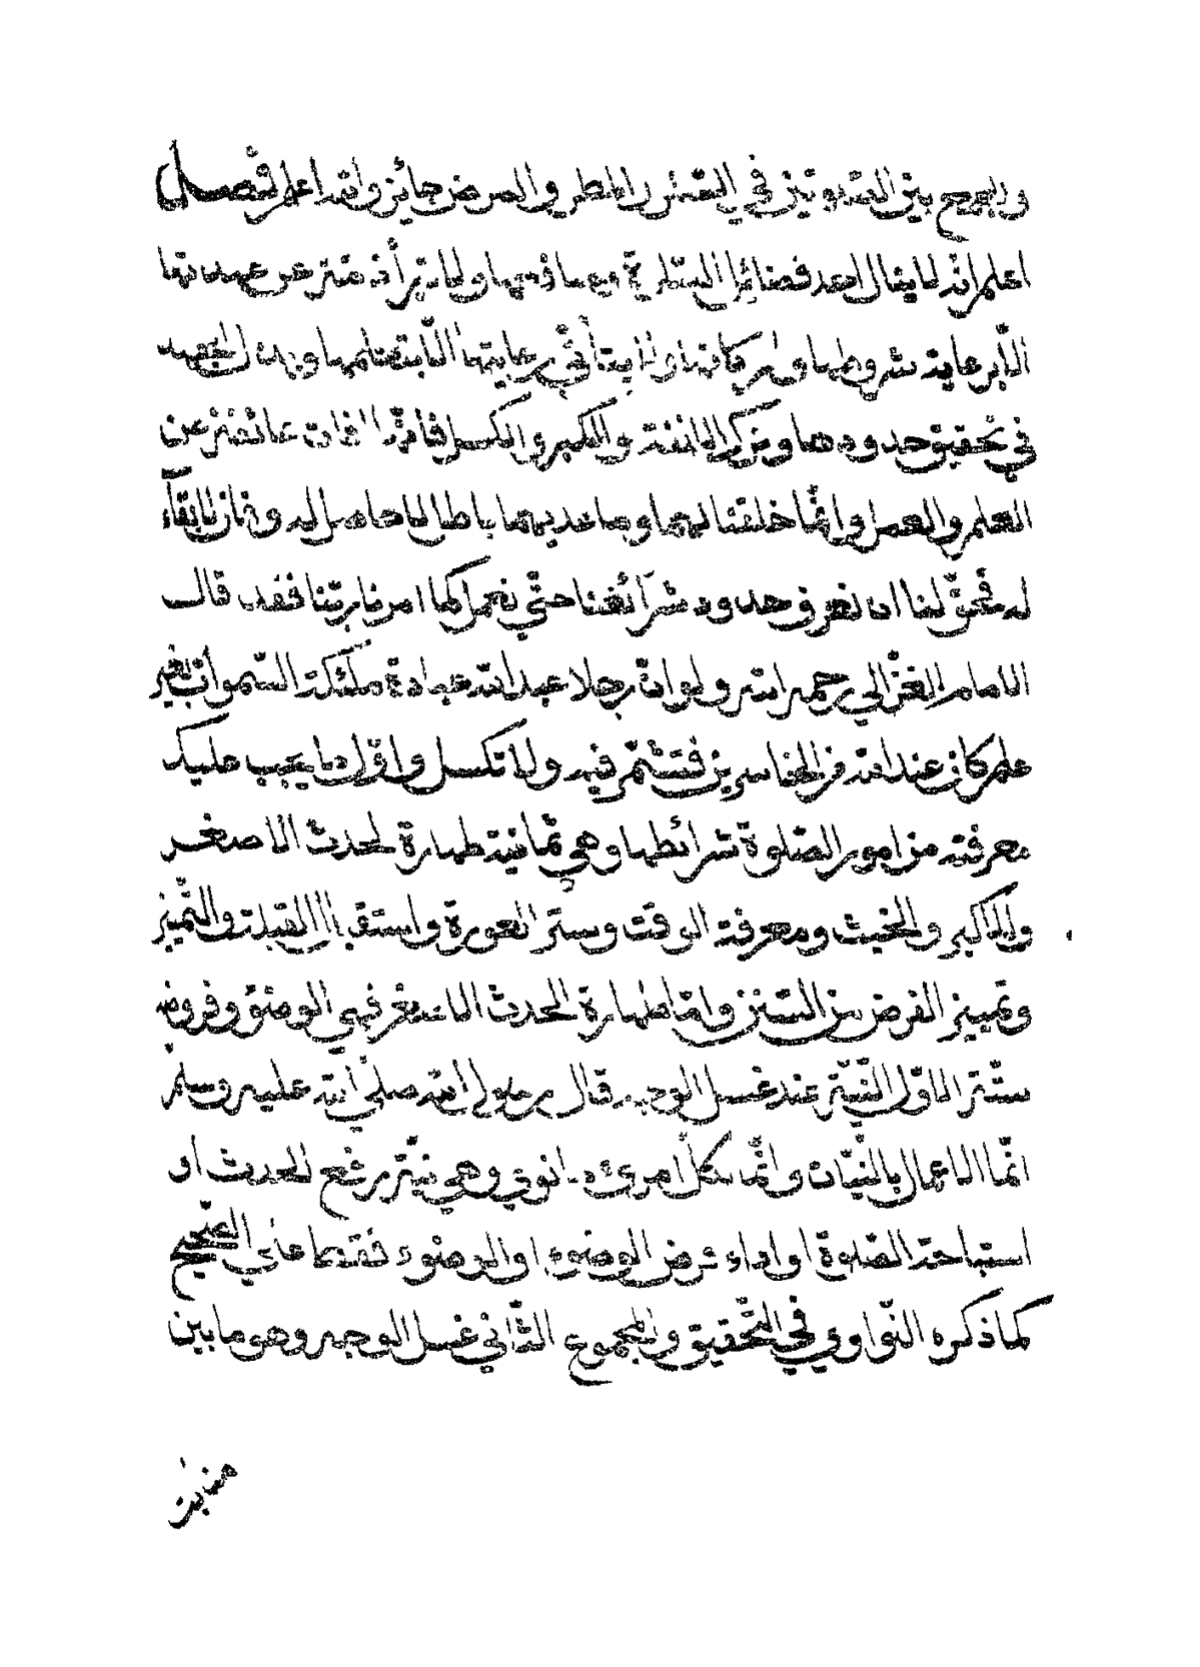 والجمع بين الصلوتين في السفر والمطر والمرض جائز والله اعلم فصل
اعلم انه لا ينال احد فضائل الصلوة ولا تبرأ ذمته عن عهدتها
الّا برعاية شروطها واركانها ولا يتأتّى رعايتها الّا بتعلمها وبذل الجهد
في تحقيق حدودها وترك الانفة والكبر والكسل فانّها آفات عائقة عن
العلم والعمل وانّما خلقنا لهما وما عديهما باطل لا حاصل له وفان لا بقآء
له فحقّ لنا ان نعرف حدود شرآئعنا حتّى نعمل كما امرنا ربّنا فقد قال
الامام الغزّالي رحمه الله ولو انّ رجلا عبد الله عبادة ملئكة السّموات بغير
علم كان عند الله من الخاسرين فتشمّر فيه ولا تكسل واوّل ما يجب عليك
معرفته من امور الصّلوة شرائطها وهي ثمانية طهارة الحدث الاصغر
والاكبر والخبث ومعرفة الوقت وستر العورة واستقبال القبلة والتّميز
وتمييز الفرض من السّنن وامّا طهارة الحدث الاصغر فهي الوضوء وفروضه
ستّة الاوّل النّيّة عند غسل الوجه قال رسول الله صلّى الله عليه وسلّم
انّما الاعمال بالنّيّات وانّما لكلّ امرئ ما نوى وهي نيّة رفع الحدث او
استباحة الصّلوة او اداء فرض الوضوء او الوضوء فقط على الصّحيح
كما ذكره النّواوي في التّحقيق والمجموع الثّاني غسل الوجه وهو ما بين
منابت